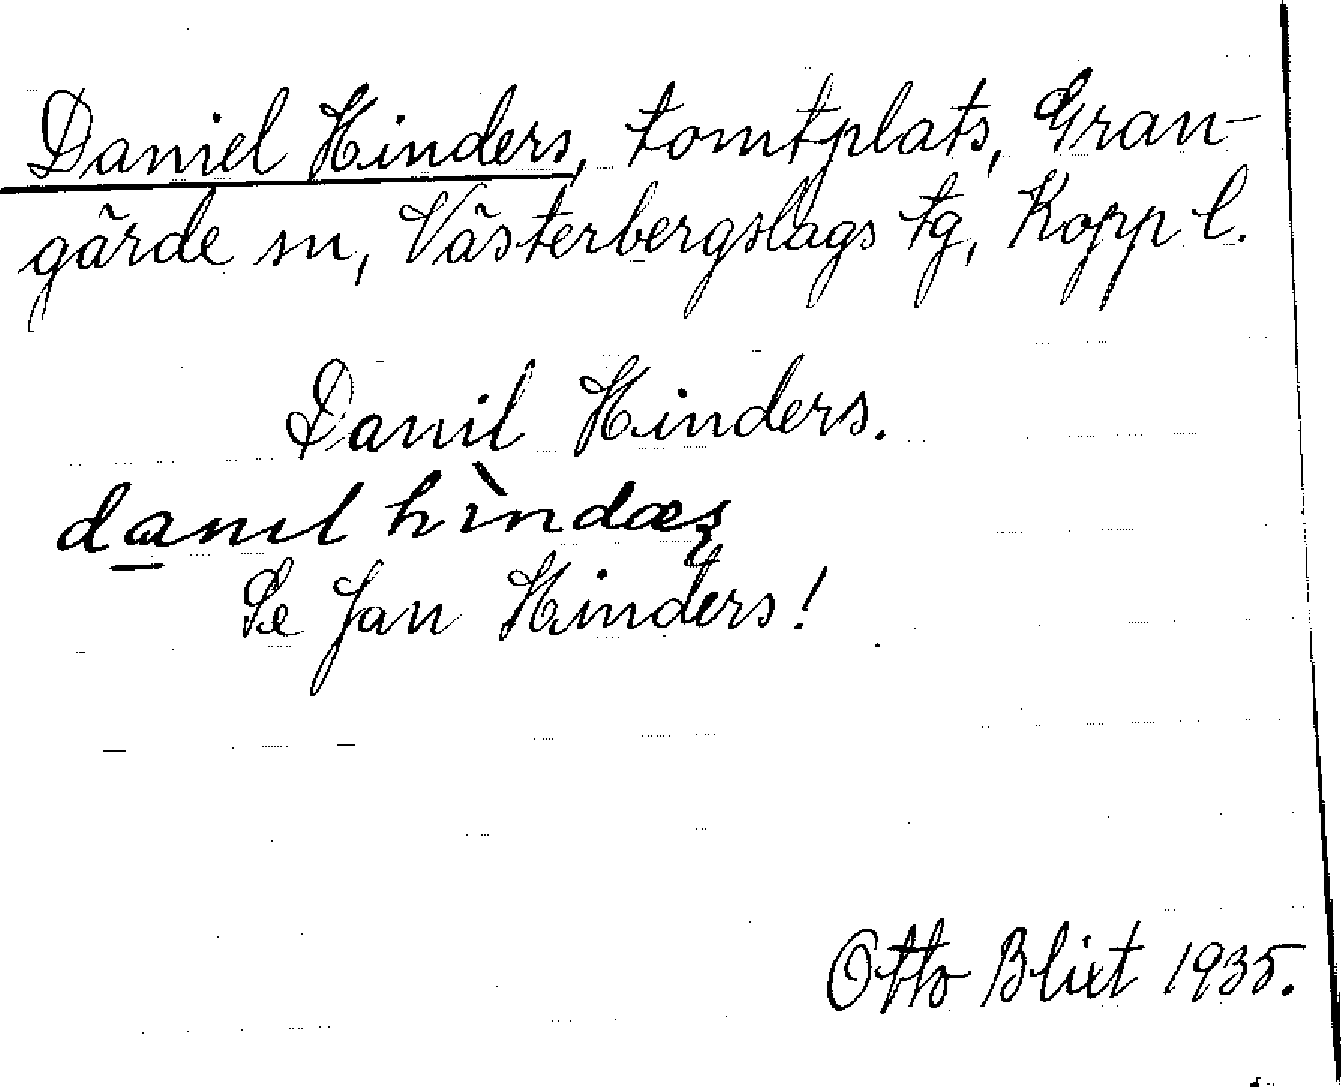 Daniel Hinders, tomtplats, Gran-
gärde sn, Västerbergslags tg, Kopp l.
Danil Hinders.
danıl hìndæʂ
Se Jan Hinders!
Otto Blixt 1935.